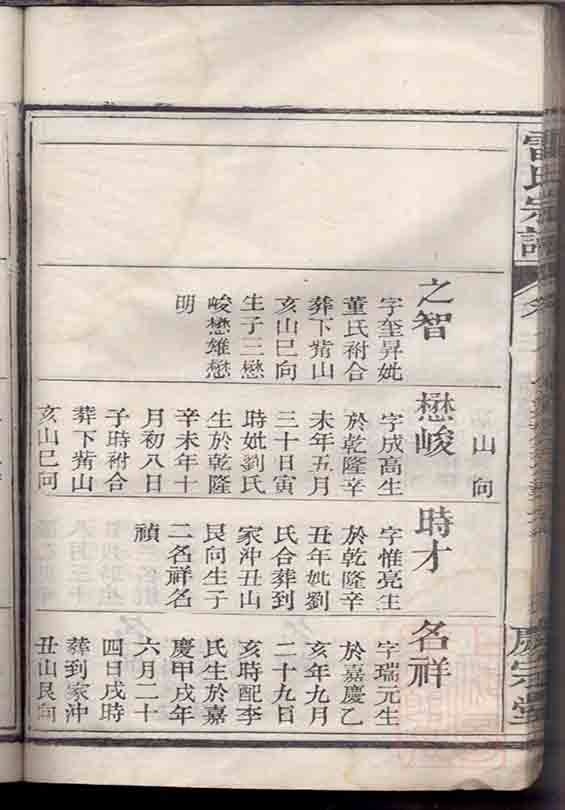 雷氏宗譜
慶宗堂
山向
之智
字奎昇妣
董氏祔合
葬下背山
亥山巳向
生子三懋
峻懋雄懋
明
懋峻
字成高生
於乾隆辛
未年五月
三十日寅
時妣劉氏
生於乾隆
辛未年十
月初八日
子時祔合
葬下背山
亥山巳向
時才
字惟亮生
於乾隆辛
丑年妣劉
氏合葬到
家沖丑山
艮向生子
二名祥名
禎
名祥
字瑞元生
於嘉慶乙
亥年九月
二十九日
亥時配李
氏生於嘉
慶甲戌年
六月二十
四日戌時
葬到家沖
丑山艮向